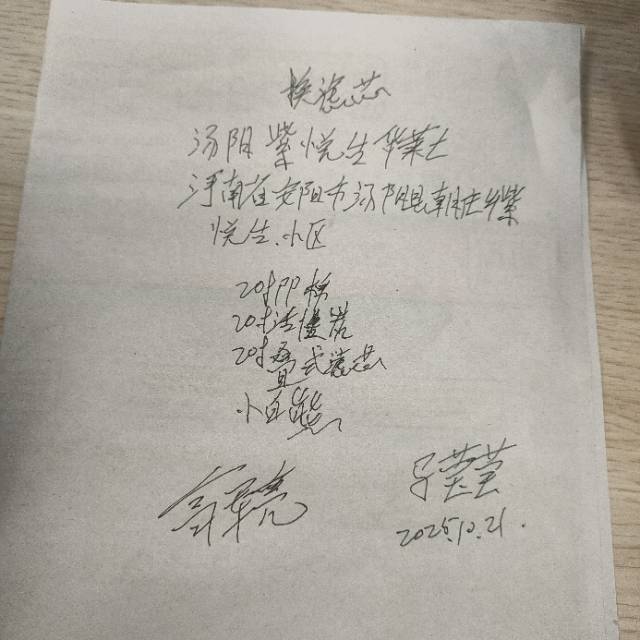 换滤芯
汤阴紫悦生华莱士
河南省安阳市汤阴县朝庄乡紫
悦生小区
20寸PP棉
20寸活性炭
20寸叠式滤芯
小白熊
2025.10.21.